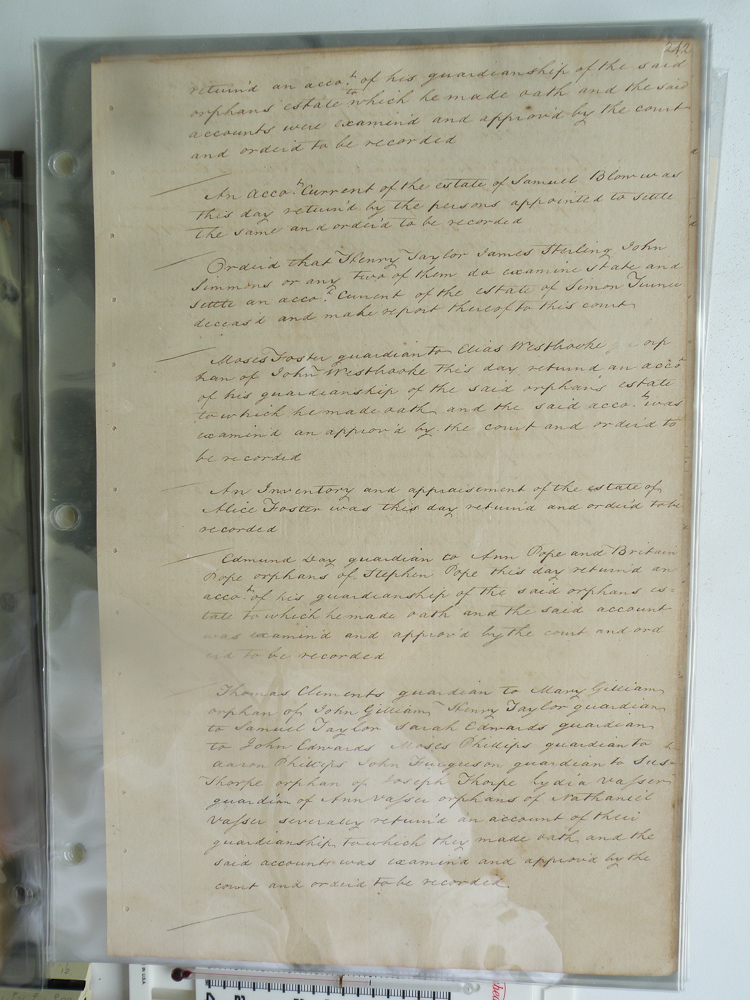 242
return'd an acco.t of his guardianship of the said
orphans estate to which he made oath and the said
accounts were examin'd and approv'd by the court
and order'd to be recorded
An Acco.t Current of the estate of Samuel Blow was
this day return'd by the persons appointed to settle
the same and order'd to be recorded
Order'd that Henry Taylor James Sterling John
Simmons or any two of them do examine state and
settle an acco.t Current of the estate of Simon Turner
deceas'd and make report thereof to this court
Moses Foster guardian to Elias Westbrooke orp
han of John Westbrooke this day return'd an acco
of his guardianship of the said orphans estate
to which he made oath and the said acco.t was
examin'd an approv'd by the court and order'd to
be recorded
An Inventory and appraisement of the estate of
Alice Foster was this day return'd and order'd to be
recorded
Edmund Day guardian to Ann Pope and Britain
Pope orphans of Stephen Pope this day return'd an
acco.t of his guardianship of the said orphans es=
tate to which he made oath and the said account
was examin'd and approv'd by the court and ord
er'd to be recorded
Thomas Clements guardian to Mary Gilliam
orphan of John Gilliam Henry Taylor guardian
to Samuel Taylor Sarah Edwards guardian
to John Edwards Moses Phillips guardian to
Aaron Phillips John Furguson guardian to Sus=
Thorpe orphan of Joseph Thorpe Lydia Vasser
guardian of Ann Vasser orphans of Nathaniel
Vasser severaley return'd an account of their
guardianship to which they made oath and the
said accounts was examin'd and approv'd by the
court and order'd to be recorded